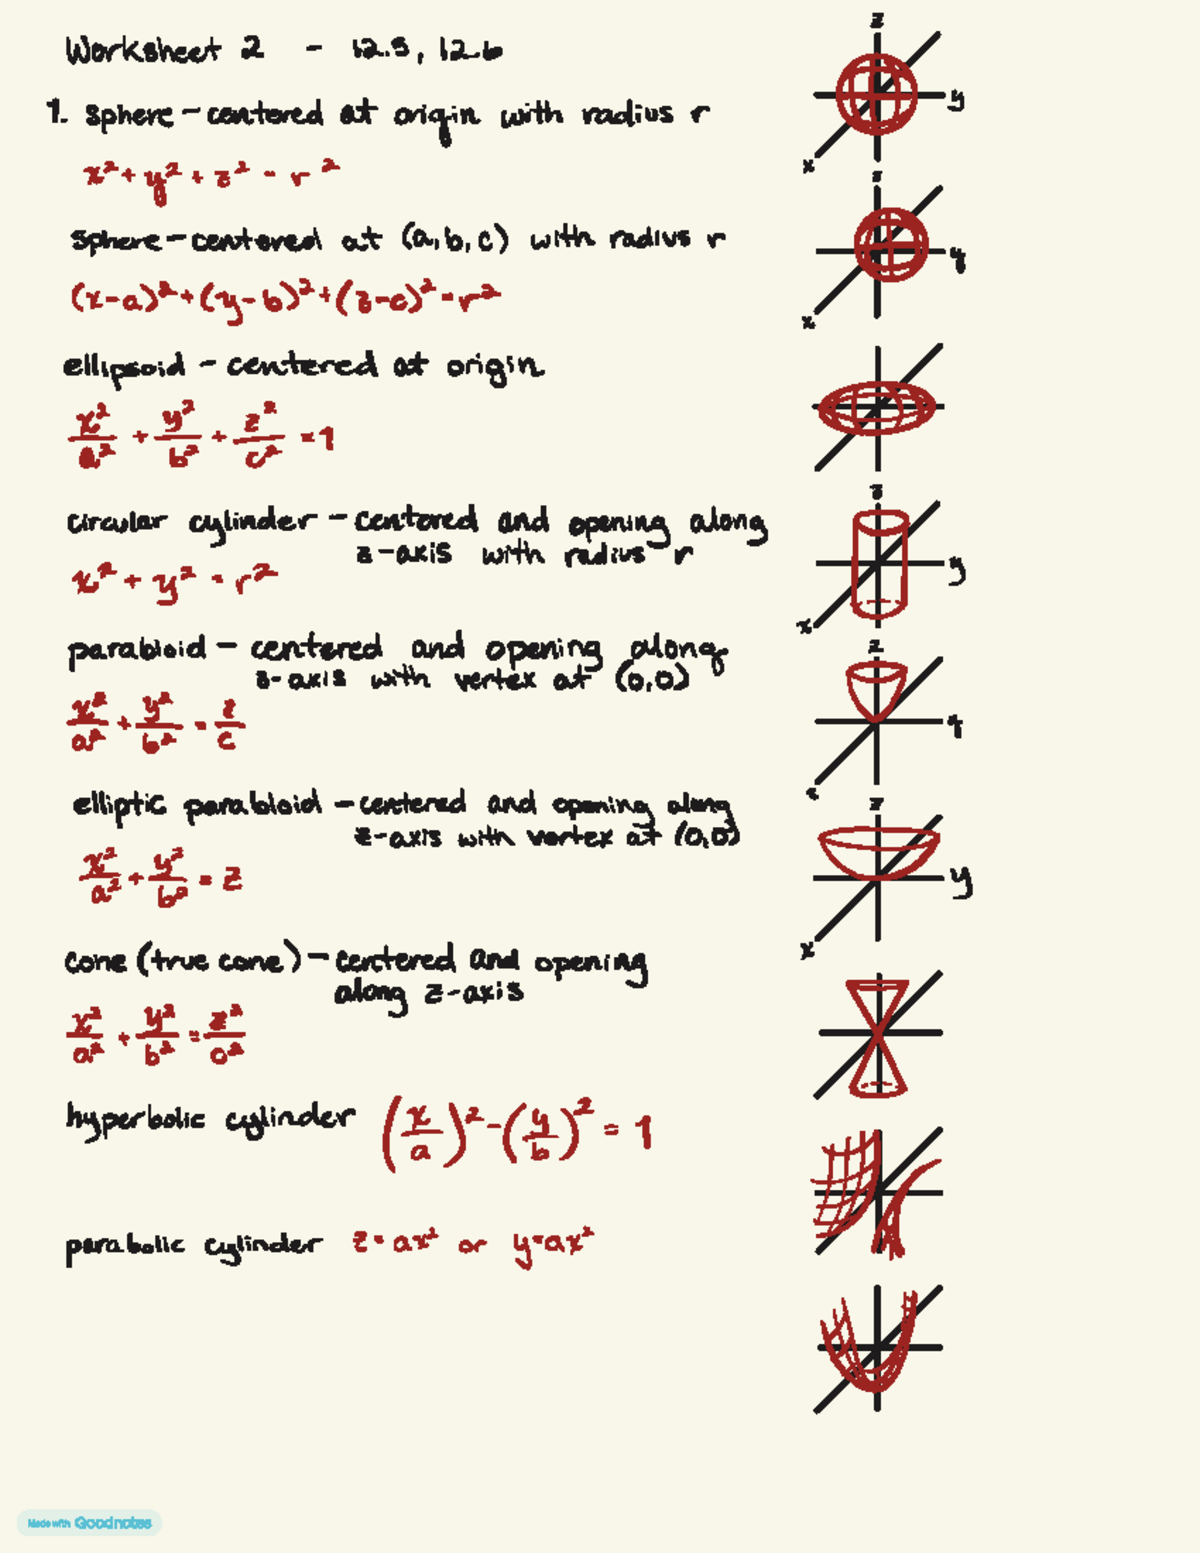 Worksheet 2 - 12.5, 12.6
1. sphere - centered at origin with radius r
x² + y² + z² = r²
sphere - centered at (a, b, c) with radius r
(x-a)² + (y-b)² + (z-c)² = r²
ellipsoid - centered at origin
x²/a² + y²/b² + z²/c² = 1
circular cylinder - centered and opening along
z-axis with radius r
x² + y² = r²
parabloid - centered and opening along
z-axis with vertex at (0,0)
x²/a² + y²/b² = z/c
elliptic parabloid - centered and opening along
z-axis with vertex at (0,0)
x²/a² + y²/b² = z
cone (true cone) - centered and opening
along z-axis
x²/a² + y²/b² = z²/c²
hyperbolic cylinder (x/a)² - (y/b)² = 1
parabolic cylinder z = ax² or y = ax²
z
y
x
z
y
x
z
y
x
z
y
x
z
y
x
Made with Goodnotes